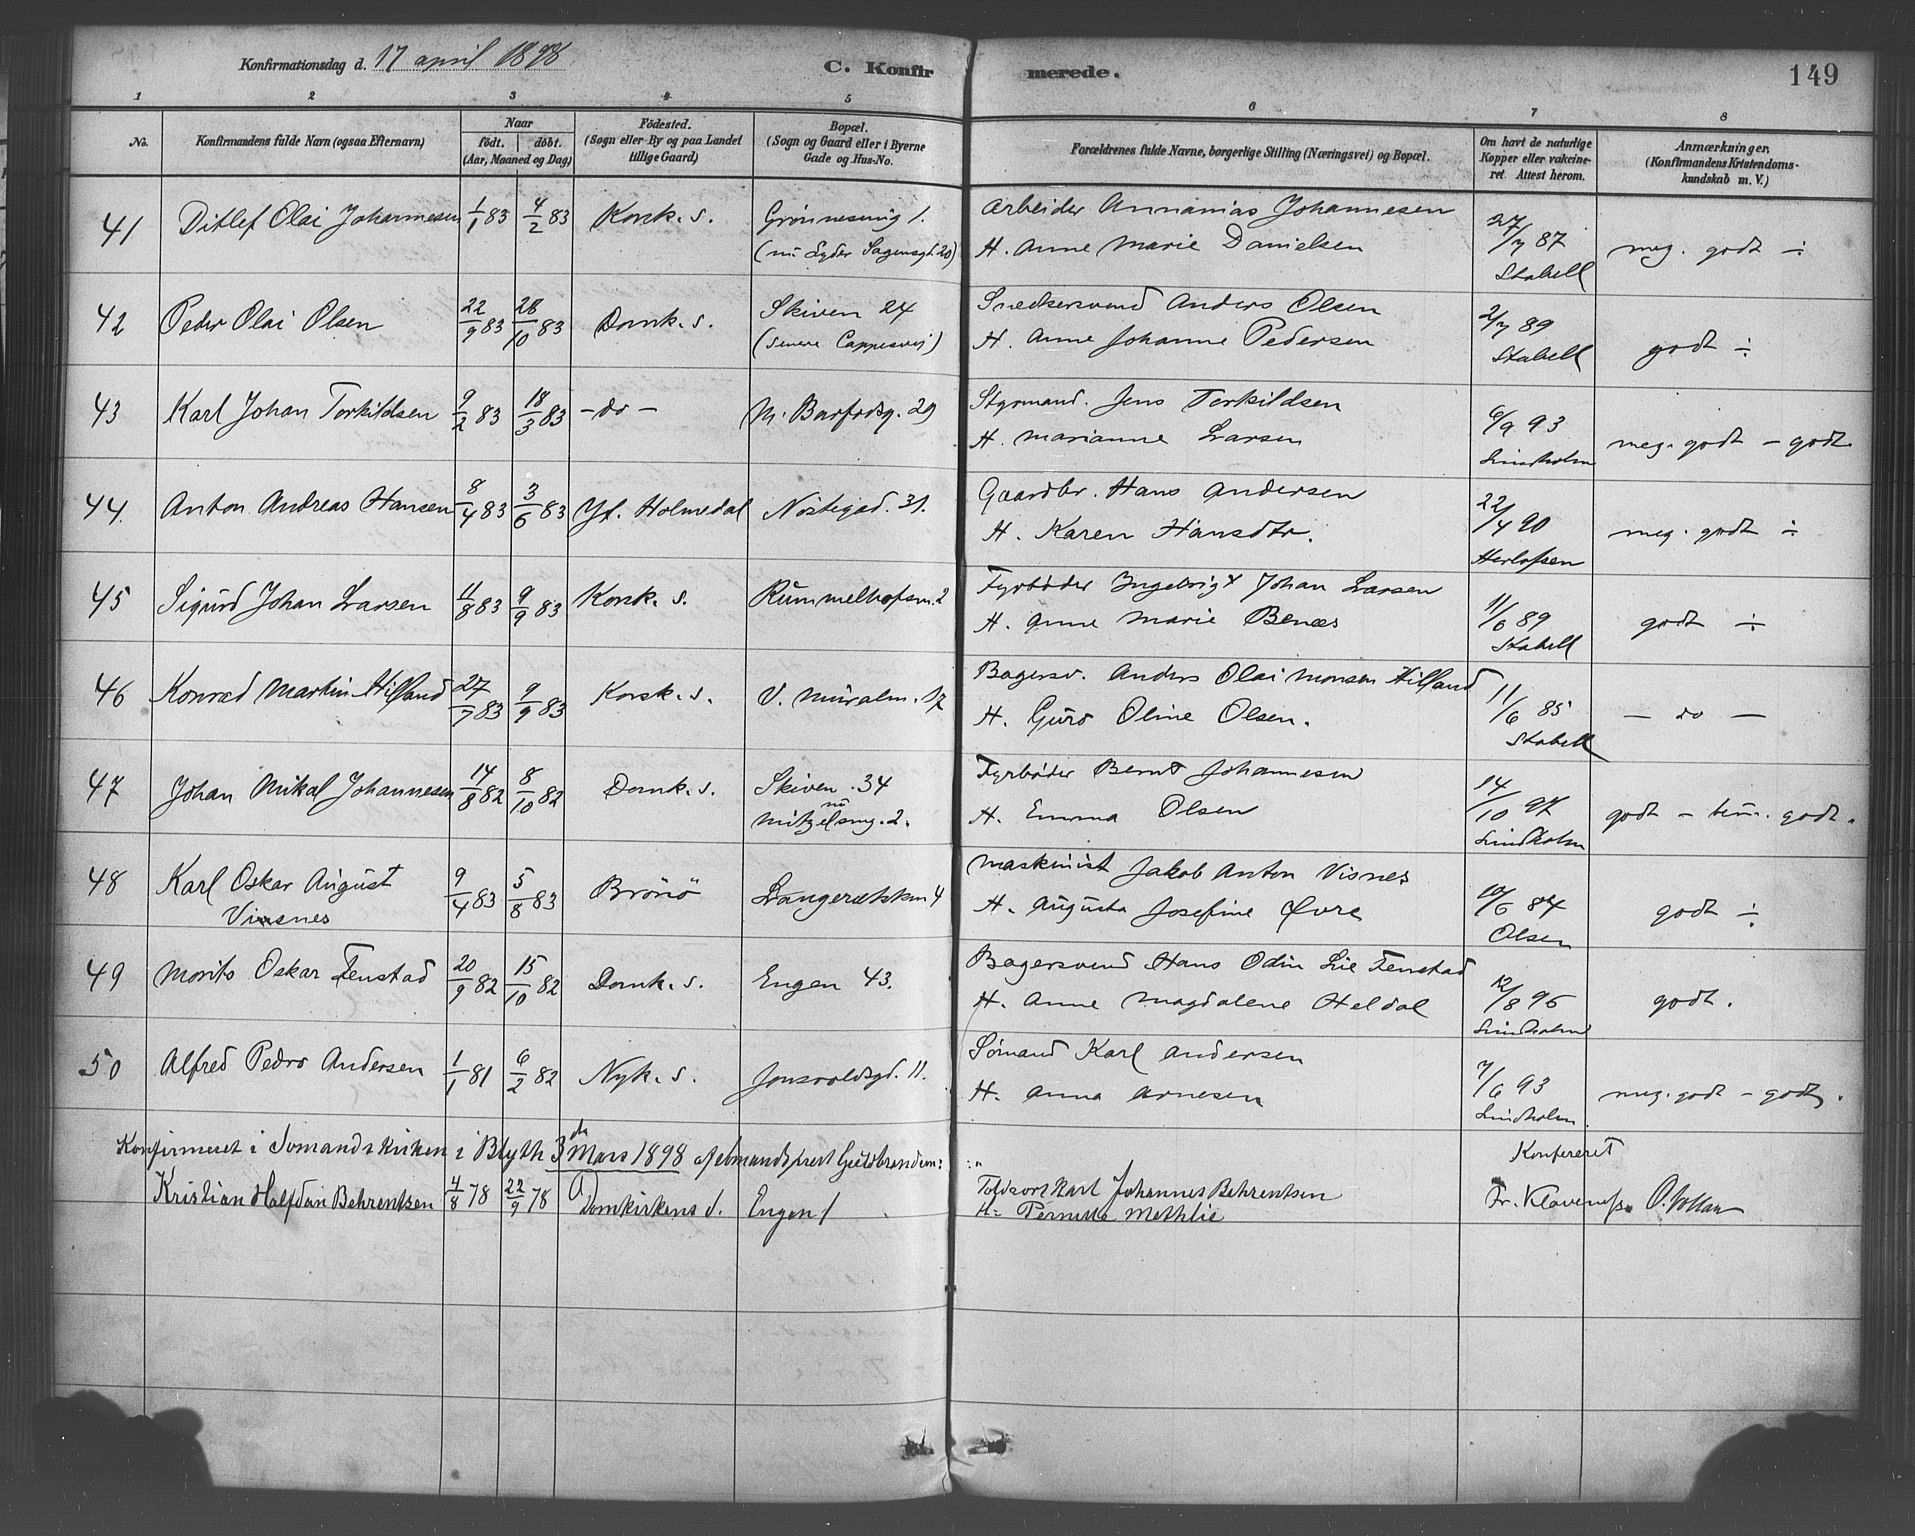 Konfirmationsdag d. 17 april 1898
C. Konfirmerede.
149
1 2 3 4 5 6 7 8
No.
Konfirmandens fulde Navn (ogsaa Efternavn)
Naar
födt. döbt.
(Aar, Maaned og Dag)
Födested.
(Sogn eller By og paa Landet
tillige Gaard)
Bopæl.
(Sogn og Gaard eller i Byerne
Gade og Hus-No.
Forældrenes fulde Navne, borgerlige Stilling (Næringsvei) og Bopæl.
Om havt de naturlige
Kopper eller vakcine-
ret. Attest herom.
Anmærkninger,
(Konfirmandens Kristendoms-
kundskab m. V.)
41 Ditlef Olai Johannesen 1/1 83 4/2 83 Korsk. s. Grønnesmug 1. Arbeider Annanias Johannesen 27/7 87
(nu Lyder Sagensgt. 20) H. Anne Marie Danielsen Stabell meg. godt ÷
42 Peder Olai Olsen 22/9 83 28/10 83 Domk. s. Skiven 24 Snedkersvend Anders Olsen 2/7 89
(senere Cappesvei) H. Anne Johanne Pedersen Stabell godt ÷
43 Karl Johan Torkildsen 9/2 83 18/3 83 - do - M. Barfodsg. 29 Styrmand. Jens Torkildsen 6/9 93
H. Marianne Larsen Lindholm meg. godt - godt
44. Anton Andreas Hansen 8/4 83 3/6 83 Yt. Holmedal Nøstegad. 31. Gaardbr. Hans Andersen 22/4 90
H. Karen Hansdtr. Herlofsen meg. godt ÷
45 Sigurd Johan Larsen 11/8 83 9/9 83 Korsk. s. Rummelhofsm. 2 Fyrbøder Ingebrigt Johan Larsen 11/6 89
H. Anne Marie Benæs Stabell godt ÷
46 Konrad Martin Hilland 27/7 83 9/9 83 Korsk. s. V. Muralm. 17 Bagersv. Anders Olai Monsen Hilland 11/6 85
H. Guro Oline Olsen. Stabell - do -
47 Johan Mikal Johannesen 14/8 82 8/10 82 Domk. s. Skiven 34 Fyrbøder Bernt Johannesen 14/10 97
nu
Mitzelsmg. 2. H. Emma Olsen Lindholm godt - tem. godt.
48 Karl Oskar August 9/4 83 5/8 83 Brønø 4 Maskinist Jakob Anton Visnes 10/6 84
Visnes H. Augusta Josefine Øvre Olsen godt ÷
49 Morits Oskar Fenstad 20/9 82 15/10 82 Domk. s. Engen 43. Bagersvend Hans Odin Lie Fenstad 12/8 96
H. Anne Magdalene Heldal Lindholm godt.
50 Alfred Pedro Andersen 1/1 81 6/2 82 Nyk. s. Jonsvoldsgd. 11. Sømand Karl Andersen 7/6 93
H. Anna Arnesen Lindholm. meg. godt - godt.
Konfirmeret i Sømandskirken i Blyth 3de Mars 1898 af sømandsprest Konfereret
Kristian Halfdan Behrentsen 4/8 78 22/9 78 Domkirkens s. Engen 1 Johannes Behrentsen Fr. Klaveness
H: Pernille Methlie